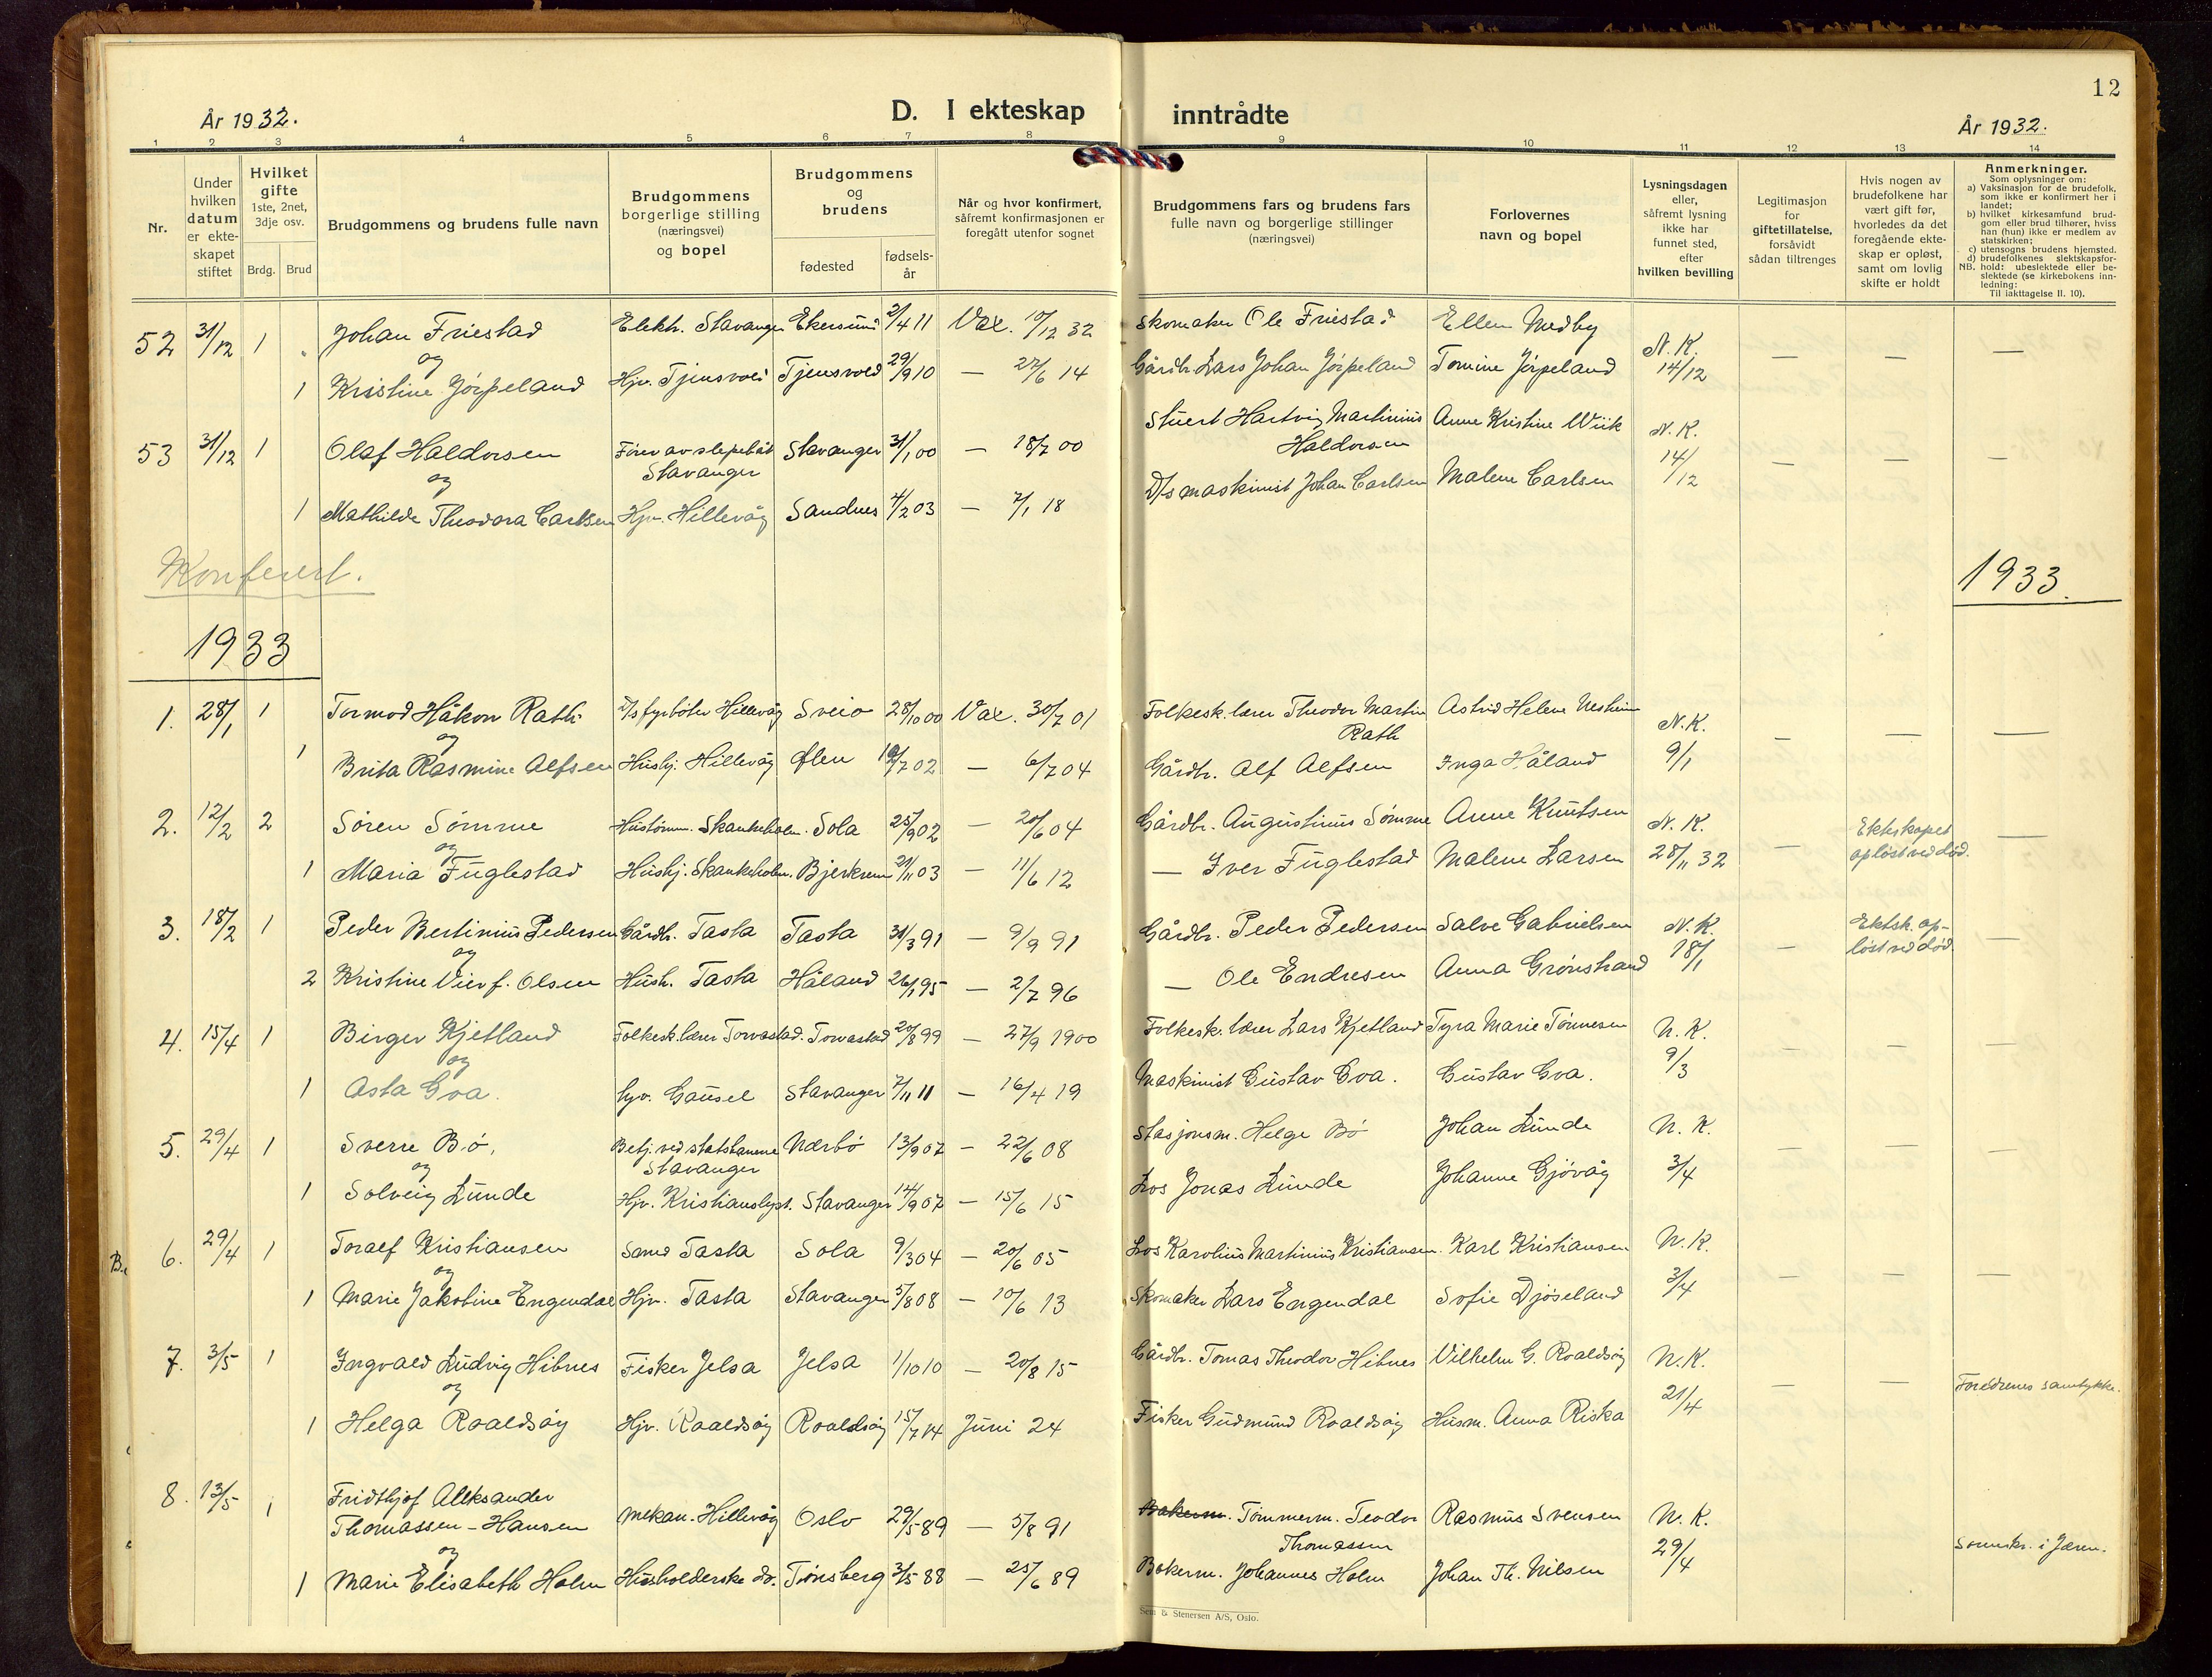 12
År 1932.
D. I ekteskap
inntrådte
År 1932.
1 2 3 4 5 6 7 8 9 10 11 12 13 14
Nr.
Under hvilken datum er ekteskapet stiftet
Hvilket gifte 1ste, 2net, 3dje osv.
Brdg. Brud
Brudgommens og brudens fulle navn
Brudgommens borgerlige stilling (næringsvei) og bopel
Brudgommens og brudens
fødested
fødselsår
Når og hvor konfirmert, såfremt konfirmasjonen er foregått utenfor sognet
Brudgommens fars og brudens fars fulle navn og borgerlige stillinger (næringsvei)
Forlovernes navn og bopel
Lysningsdagen eller, såfremt lysning ikke har funnet sted, efter hvilken bevilling
Legitimasjon for giftetillatelse, forsåvidt sådan tiltrenges
Hvis nogen av brudefolkene har vært gift før, hvorledes da det foregående ekteskap er opløst, samt om lovlig skifte er holdt
Anmerkninger.
Som oplysninger om:
a) Vaksinasjon for de brudefolk, som ikke er konfirmert her i landet;
b) hvilket kirkesamfund brudgom eller brud tilhører, hviss han (hun) ikke er medlem av statskirken;
c) utensogns brudens hjemsted.
d) brudefolkenes slektskapsforhold: ubeslektede eller beslektede (se kirkebokens innledning:
NB.
Til iakttagelse II. 10).
52 31/12 1 Johan Friestad Elektr. Stavanger Ekersund 2/4 11 Vax. 17/12 32 Skomaker Ole Friestad Ellen Medby N.K. 14/12 — — —
og
1 Kristine Jørpeland Hjv. Tjensvold Tjensvold 29/9 10 — 27/6 14 Gårdbr. Lars Johan Jørpeland Tomine Jørpeland
53 31/12 1 Olaf Haldorsen Fører av slepebåt Stavanger Stavanger 31/1 00 — 18/7 00 Stuert Hartvig Martinius Haldorsen Anne Kristine Wiik N.K. 14/12 — — —
og
1 Mathilde Theodora Carlsen Hjv. Hillevåg Sandnes 4/2 03 — 7/1 18 D/s maskinist Johan Carlsen Malene Carlsen
Konferert.
1933.
1933
1. 28/1 1 Tormod Håkon Rath D/s fyrbøter Hillevåg Sveio 28/10 00 Vax. 30/7 01 Folkesk. lærer Theodor Martin Rath Astrid Helene Nesheim N.K. 9/1 — — —
og
1 Brita Rasmine Alfsen Hushj. Hillevåg Ølen 19/7 02 — 6/7 04 Gårdbr. Alf Alfsen Inga Håland
2. 12/2 2 Søren Sømme Hustømm. Skankeholm. Sola 25/9 02 — 20/6 04 Gårdbr. Augustinus Sømme Anne Knutsen N.K. 28/11 32 — Ekteskapet opløst ved død. —
og
1 Maria Fuglestad Hushj. Skankeholm. Bjerkreim 21/11 03 — 11/6 12 — Iver Fuglestad Malene Larsen
3. 18/2 1 Peder Bertinius Pedersen Gårdbr. Tasta Tasta 31/3 91 — 9/9 91 Gårdbr. Peder Pedersen Salve Gabrielsen N.K. 18/1 — Ektsk. opløst ved død —
og
2 Kristine Vier f. Olsen Hush. Tasta Håland 26/1 95 — 2/7 96 — Ole Endresen Anna Grønstrand
4. 15/4 1 Birger Kjetland Folkesk. lærer Torvastad. Torvastad 20/8 99 — 27/9 1900 Folkesk. lærer Lars Kjetland Tyra Marie Tønnesen N.K. 9/3 — — —
og
1 Asta Goa. Hjv. Gausel Stavanger 7/11 11 — 16/4 19 Maskinist Gustav Goa. Gustav Goa.
5. 29/4 1 Sverre Bø, Betj. ved statsbanene Stavanger Nærbø 13/9 07 — 22/6 08 Stasjonsm. Helge Bø Johan Lunde N.K. 3/4 — — —
og
1 Solveig Lunde Hjv. Kristianslyst. Stavanger 14/9 07 — 15/6 15 Los Jonas Lunde Johanne Gjøvåg
B. 6. 29/4 1 Toralf Kristiansen Smed Tasta Sola 9/3 04 — 20/6 05 Los Karolius Martinius Kristiansen. Karl Kristiansen N.K. 3/4 — — —
og
1 Marie Jakobine Engendal Hjv. Tasta Stavanger 5/8 08 — 10/6 13 Skomaker Lars Engendal Sofie Djøseland
7. 3/5 1 Ingvald Ludvig Hibnes Fisker Jelsa Jelsa 1/10 10 — 20/8 15 Gårdbr. Tomas Theodor Hibnes Vilhelm G. Roaldsøy N.K. 21/4 — — Foreldrenes samtykke.
og
1 Helga Roaldsøy Hjv. Roaldsøy Roaldsøy 15/7 14 Juni 24 Fisker Gudmund Roaldsøy Husm. Anna Riska
8. 13/5 1 Fridthjof Alleksander Thomassen-Hansen Mekan. Hillevåg Oslo 29/5 89 — 5/8 91 Bakerm. Tømmerm. Teodor Thomassen Rasmus Svensen N.K. 29/4
og
1 Marie Elisabeth Holm Husholderske do. Tønsberg 3/5 88 — 25/6 89 Bakerm. Johannes Holm Johan Th. Nilsen
Sem & Stenersen A/S, Oslo.